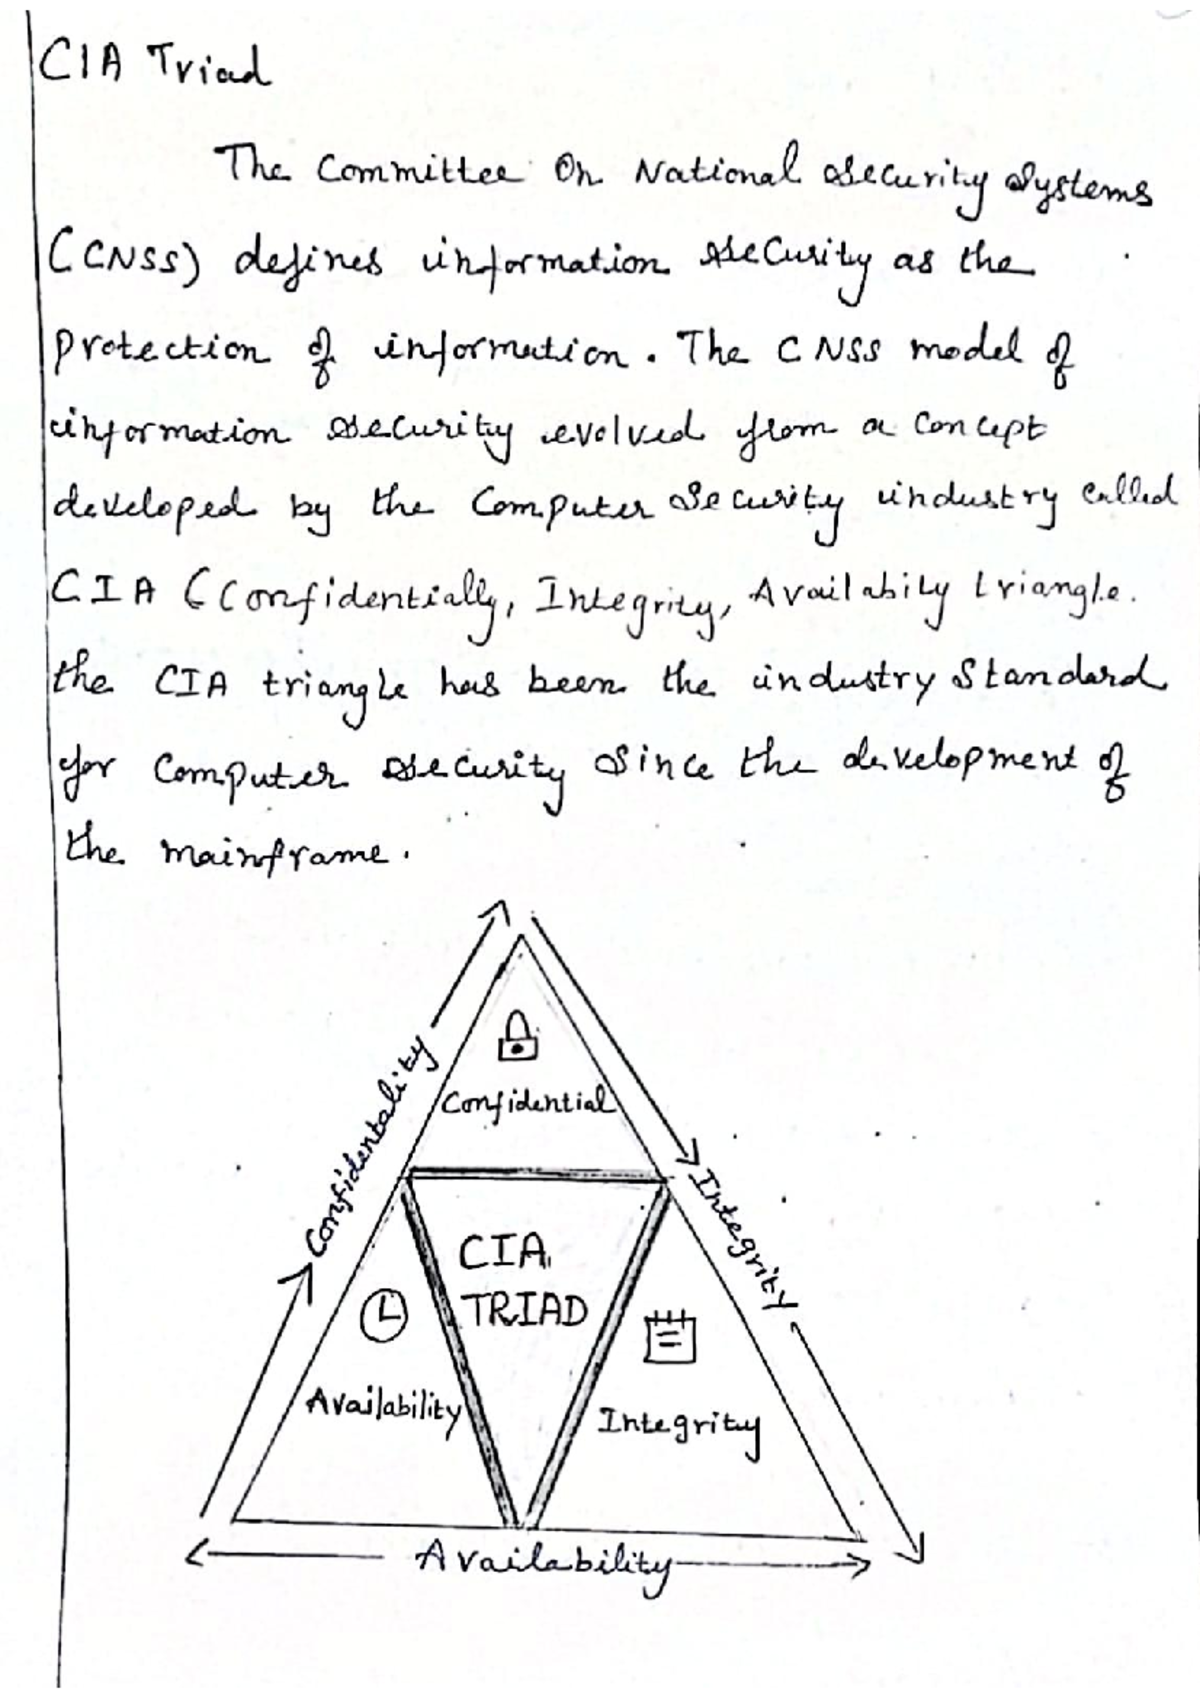 CIA Triad
The Committee On National Security Systems
(CNSS) defines information security as the
protection of information. The CNSS model of
information security evolved from a concept
developed by the Computer Security industry called
CIA (Confidentially, Integrity, Availabity triangle.
the CIA triangle has been the industry Standard
for Computer security Since the development of
the mainframe.
Confidential
Confidentality
Integrity
CIA
TRIAD
Availability
Integrity
Availability